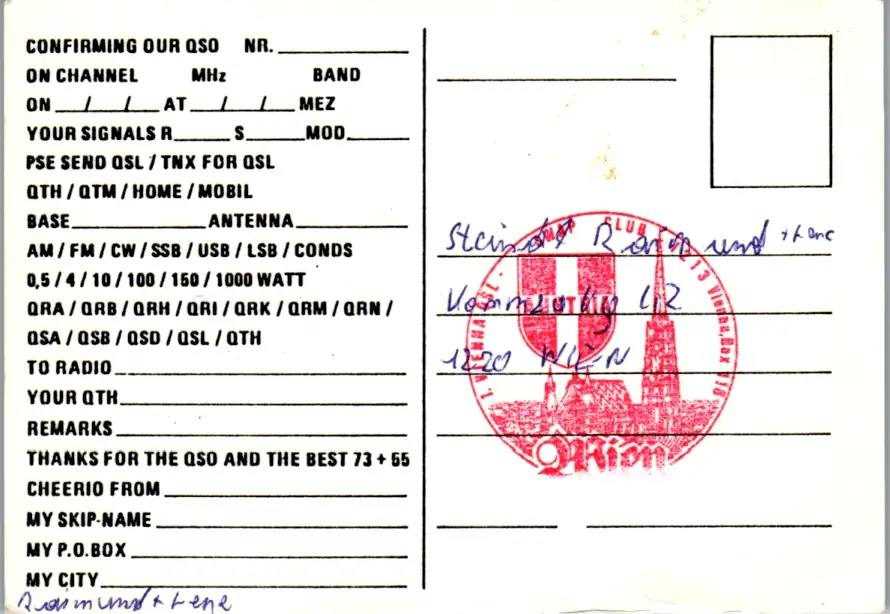 CONFIRMING OUR QSO NR.
ON CHANNEL MHz BAND
ON / / AT / / MEZ
YOUR SIGNALS R S MOD
PSE SEND QSL / TNX FOR QSL
QTH / QTM / HOME / MOBIL
BASE ANTENNA
AM / FM / CW / SSB / USB / LSB / CONDS
0,5 / 4 / 10 / 100 / 150 / 1000 WATT
QRA / QRB / QRH / QRI / QRK / QRM / QRN /
QSA / QSB / QSD / QSL / QTH
TO RADIO
YOUR QTH
REMARKS
THANKS FOR THE QSO AND THE BEST 73 + 55
CHEERIO FROM
MY SKIP-NAME
MY P.O.BOX
MY CITY
Raimund + Lene
Raimund + Lene
1220 WIEN
SWAP CLUB 1213 Vienna, Box 118
Wien